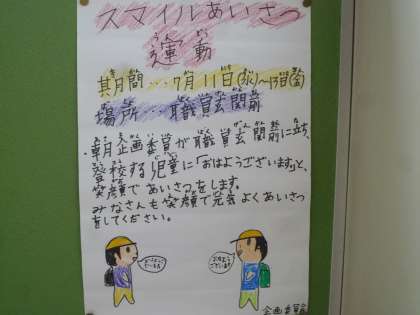 スマイルあいさつ
運動
うんどう
期間…7月11日(水)〜13日(金)
場所…職員玄関前
朝、企画委員が職員玄関前に立ち、
登校する児童に「おはようございます」と、
笑顔であいさつをします。
みなさんも笑顔で元気よくあいさつ
をしてください。
おはよう
ございます
おはよう
ございます
企画委員会